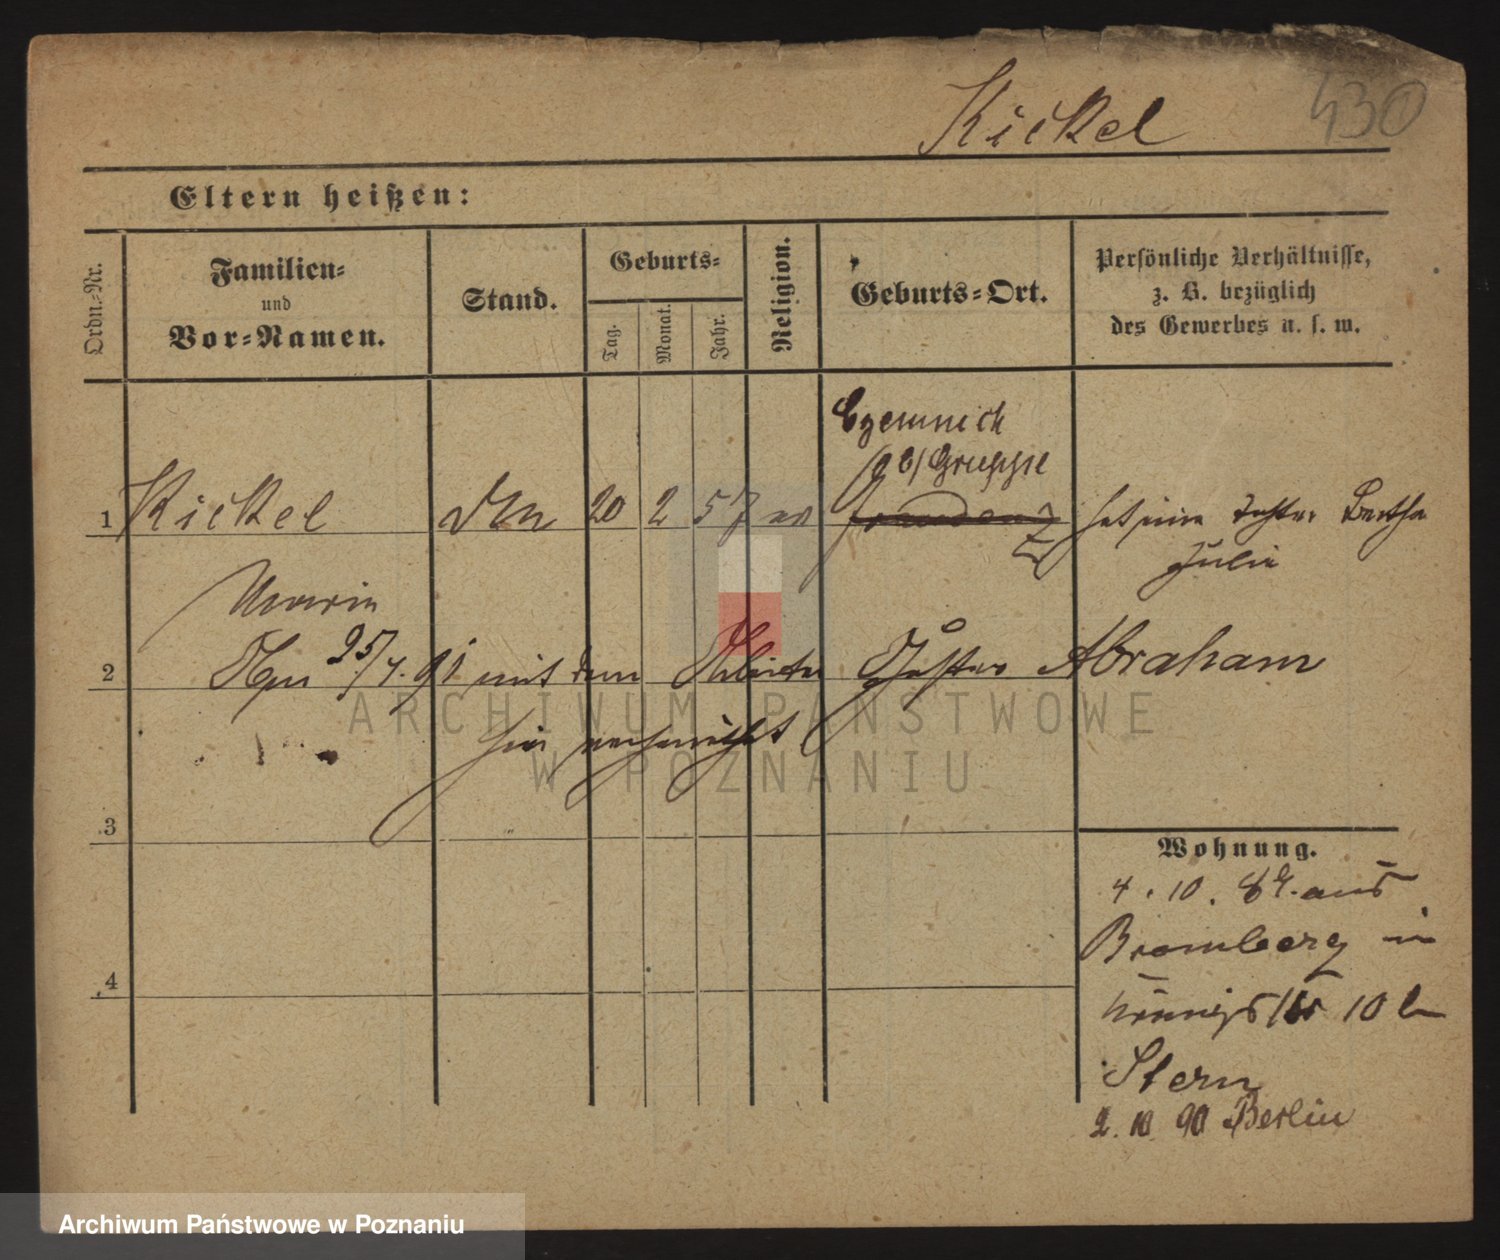 Kickel 430
Eltern heißen:
Ordn.-Nr.
Familien-
und
Vor-Namen.
Stand.
Geburts-
Tag.
Monat.
Jahr.
Religion.
Geburts-Ort.
Persönliche Verhältnisse,
z. B. bezüglich
des Gewerbes u. s. w.
Czemnick
b/Gruppe
1 Kickel 20 2 57 ev hat eine Tochter Bertha
Julie
2 25/4. 91 mit dem Abraham
hier
3
4
Wohnung.
4. 10. 89. aus
Bromberg in
Königsstr 10 b
Stern
2. 10. 90 Berlin
ARCHIWUM PAŃSTWOWE
W POZNANIU
Archiwum Państwowe w Poznaniu